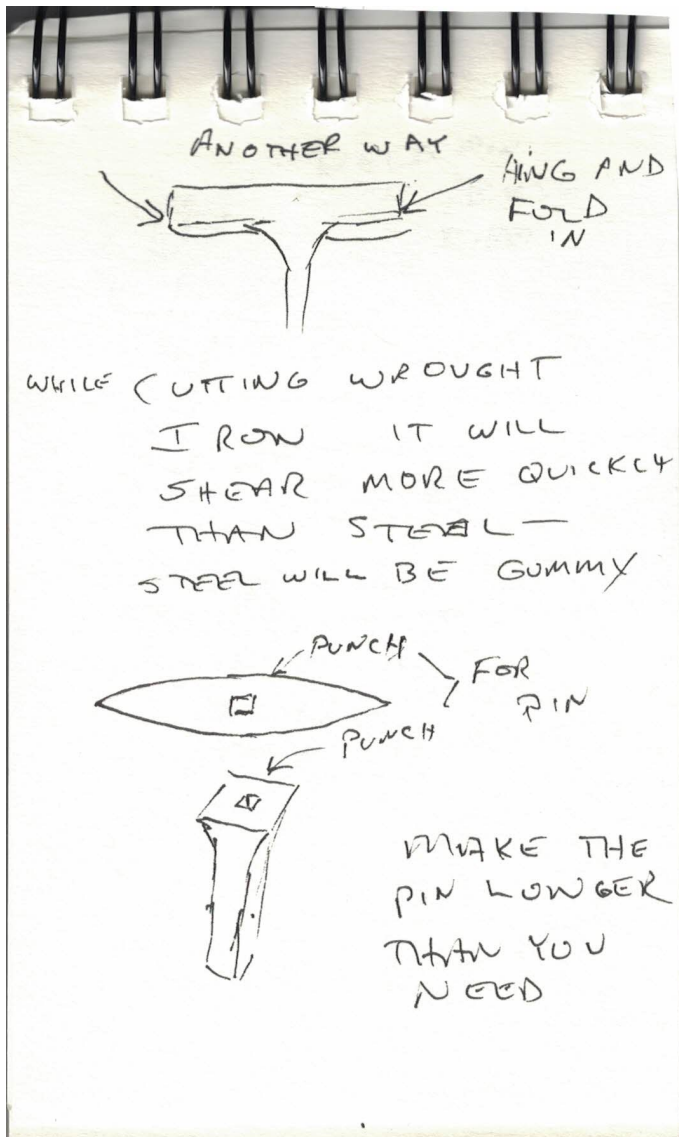 ANOTHER WAY
AND
FOLD
IN
WHILE CUTTING WROUGHT
IRON IT WILL
SHEAR MORE QUICKLY
THAN STEEL—
STEEL WILL BE GUMMY
PUNCH
FOR
PIN
PUNCH
MAKE THE
PIN LONGER
THAN YOU
NEED